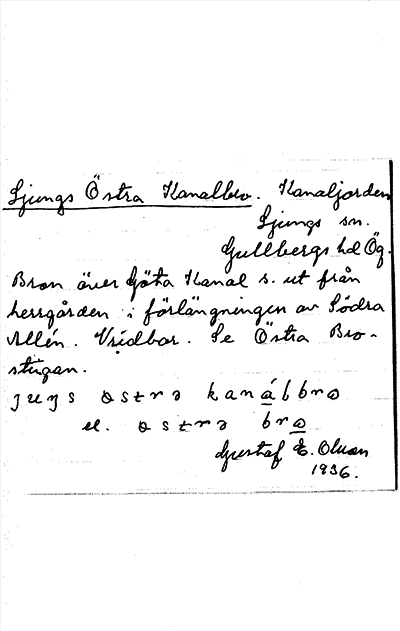 Ljungs Östra Kanalbro. Kanaljorden
Ljungs sn.
Gullbergs hd Ög.
Bron över Göta Kanal s. ut från
herrgården i förlängningen av Södra
Allén. Vridbar. Se Östra Bro-
stugan.
el.
Gustaf E. Olsson
1936.